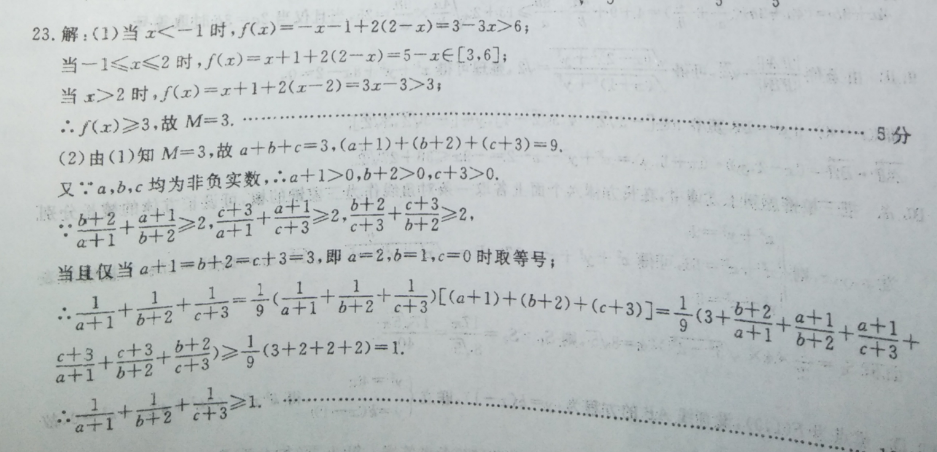 23. 解:(1)当 x<-1 时,f(x)=-x-1+2(2-x)=3-3x>6;
当-1≤x≤2 时,f(x)=x+1+2(2-x)=5-x∈[3,6];
当 x>2 时,f(x)=x+1+2(x-2)=3x-3>3;
∴f(x)≥3,故 M=3. …………………………………………………………………… 5 分
(2)由(1)知 M=3,故 a+b+c=3,(a+1)+(b+2)+(c+3)=9.
又∵a,b,c 均为非负实数,∴a+1>0,b+2>0,c+3>0.
∵\frac{b+2}{a+1}+\frac{a+1}{b+2}≥2,\frac{c+3}{a+1}+\frac{a+1}{c+3}≥2,\frac{b+2}{c+3}+\frac{c+3}{b+2}≥2,
当且仅当 a+1=b+2=c+3=3,即 a=2,b=1,c=0 时取等号;
∴\frac{1}{a+1}+\frac{1}{b+2}+\frac{1}{c+3}=\frac{1}{9}(\frac{1}{a+1}+\frac{1}{b+2}+\frac{1}{c+3})[(a+1)+(b+2)+(c+3)]=\frac{1}{9}(3+\frac{b+2}{a+1}+\frac{a+1}{b+2}+\frac{a+1}{c+3}+
\frac{c+3}{a+1}+\frac{c+3}{b+2}+\frac{b+2}{c+3})≥\frac{1}{9}(3+2+2+2)=1.
∴\frac{1}{a+1}+\frac{1}{b+2}+\frac{1}{c+3}≥1. ……………………………………………………………………